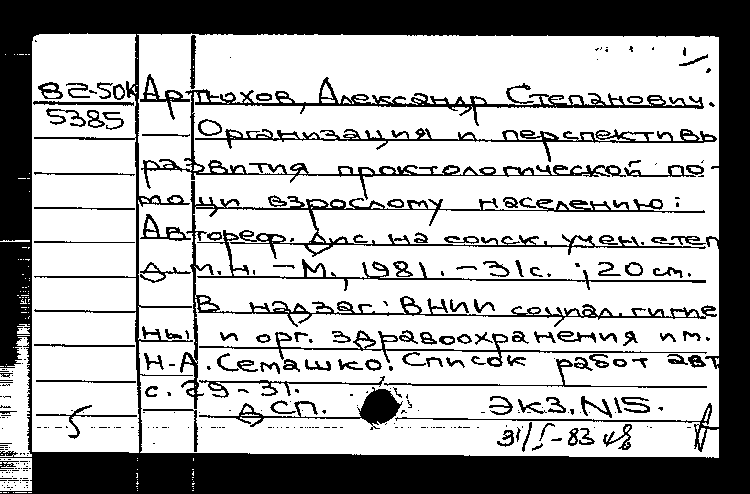 82-50К Артюхов, Александр Степанович.
5385 Организация и перспективы
развития проктологической по-
мощи взрослому населению:
Автореф. дис. на соиск. учен. степ
д.м.н. – М., 1981. – 31 с. ; 20 см.
В надзаг: ВНИИ социал. гигие
ны и орг. здравоохранения им.
Н.А. Семашко. Список работ авт
с. 29-31.
ДСП. ЭКЗ. N15.
5